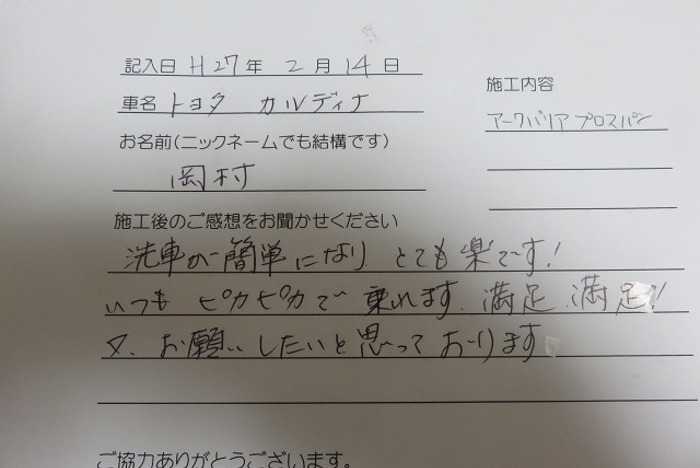 記入日 H27年 2月14日
施工内容
車名 トヨタ カルディナ
アークバリアプロスパン
お名前(ニックネームでも結構です)
岡村
施工後のご感想をお聞かせください
洗車が簡単になり とても楽です!
いつも ピカピカで 乗れます、満足、満足!
又、お願いしたいと思って おります
ご協力ありがとうございます。